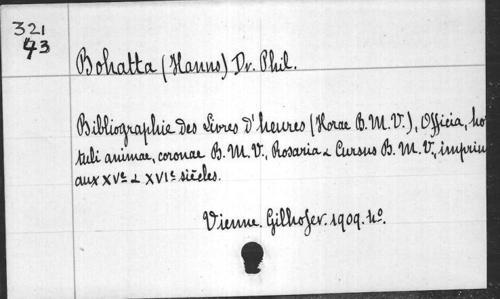 321
43
Bohatta (Hanns) Dr. Phil.
Bibliographie des Livres d'heures (Horae B.M.V.), Officia, ho
tuli animae, coronae B.M.V., Rosaria & Cursus B.M.V., imprim
aux XVe & XVIe siècles.
Vienne. Gilhofer. 1909. 4o.